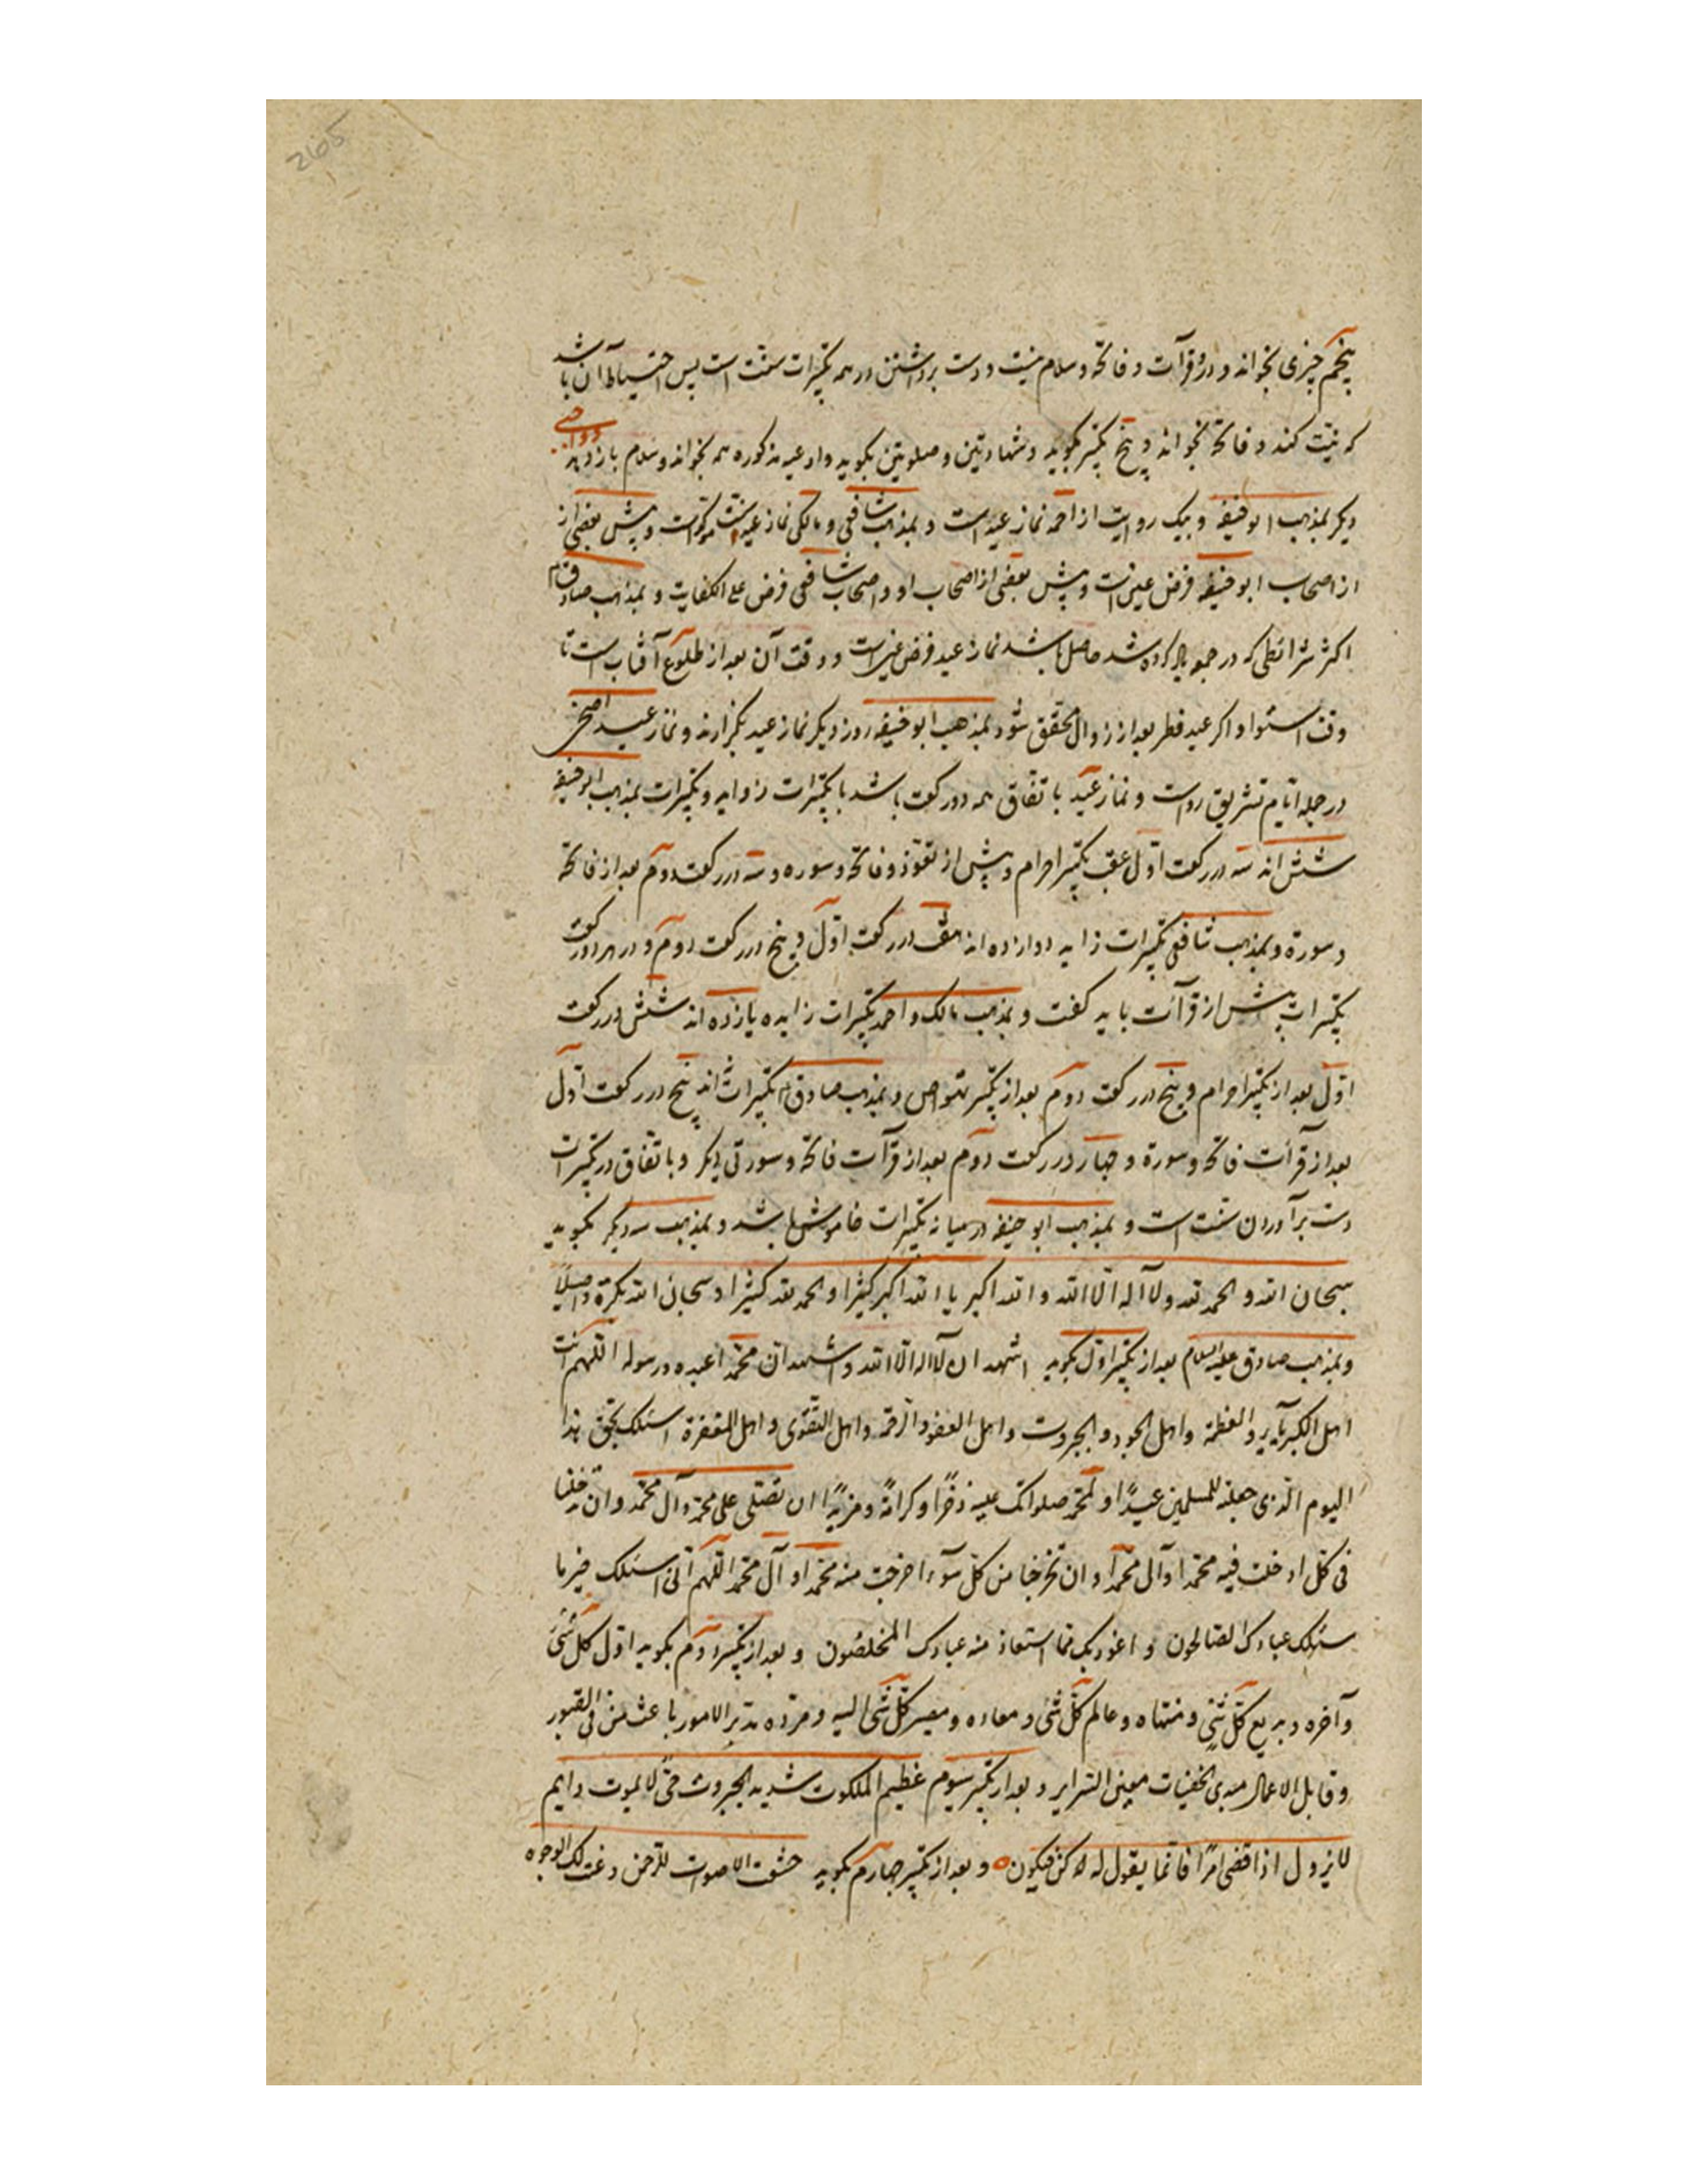 2605
پنجم چیزی نخواند و درو قرآت و فاتحه و سلام نیست و دست برداشتن در همه تکبیرات سنت است پس احتیاط آن باشد
که نیّت کند و فاتحه بخواند و پنج تکبیر بگوید و شهادتین و صلوتین بگوید و ادعیه مذکوره همه بخواند و سلام باز دهد
دیگر بمذهب ابو حنیفه و بیک روایت از احمد نماز عید است و بمذهب شافعی و مالکی نماز عید سنت موکد است و پیش بعضی از
از اصحاب ابو حنیفه فرض عین است و پیش بعضی از اصحاب او و اصحاب شافعی فرض علی الکفایت و بمذهب صادق
اکثر شرائطی که در جمعه یاد کرده شد حاصل باشد نماز عید فرض عین است و وقت آن بعد از طلوع آفتاب است تا
وقت استوا و اگر عید فطر بعد از زوال محقّق شود بمذهب ابو حنیفه روز دیگر نماز عید بگزارند و نماز عید اضحی
در جمله ایّام تشریق رواست و نماز عید باتفاق همه دو رکعت باشد با تکبیرات زواید و تکبیرات بمذهب ابو حنیفه
شش اند سه در رکعت اوّل عقب تکبیر احرام و پیش از تعوّذ و فاتحه و سوره و سه در رکعت دوم بعد از فاتحه
و سورة و بمذهب شافعی تکبیرات زاید دوازده اند هفت در رکعت اوّل و پنج در رکعت دوم و در هر دو رکعت
تکبیرات پیش از قرآئت باید گفت و بمذهب مالک و احمد تکبیرات زایده یازده اند شش در رکعت
اوّل بعد از تکبیر احرام و پنج در رکعت دوم بعد از تکبیر و بمذهب صادق تکبیرات اند پنج در رکعت اوّل
بعد از قرآئت فاتحه و سورة و چهار در رکعت دوم بعد از قرآئت فاتحه و سورتی دیگر و باتفاق در تکبیرات
دست برآوردن سنت است و بمذهب ابو حنیفه در میانه تکبیرات خاموش باشد و بمذهب سه دیگر بگوید
سبحان الله و الحمد لله و لا اله الّا الله و الله اکبر یا الله اکبر کبیرا و الحمد لله کثیرا و سبحان الله بکرة و اصیلاً
و بمذهب صادق علیه السلام بعد از تکبیر اوّل بگوید اشهد ان لا اله الّا الله و اشهد انّ محمّدا عبده و رسوله اللهم انت
اهل الکبریآء و العظمة و اهل الجود و الجبروت و اهل العفو و الرّحمة و اهل التقوی و اهل المغفرة اسئلک بحق هذا
الیوم الّذی جعلته للمسلمین عیدًا و لمحمّد صلواتک علیه ذخرًا و کرامةً و مزیدًا ان تصلی علی محمّد و آل محمّد و ان تدخلنا
فی کل ادخلت فیه محمّدا و آل محمّد و ان تخرجنا من کل سوٓء اخرجت منه محمّدا و آل محمّد اللّهم انّی اسئلک خیر ما
سئلک عبادک الصالحون و اعوذ بک ممّا استعاذ منه عبادک المخلصون و بعد از تکبیر دوم بگوید اوّل کل شیٔ
و آخره و بدیع کل شیٔ و منتهاه و عالم کل شیٔ و معاده و مصیر کل شیٔ الیه و مردّه مدبّر الامور باعث من فی القبور
و قابل الاعمال مبدی الخفیات معلن السرایر و بعد از تکبیر سیوم عظیم الملکوت شدید الجبروت حیّ لا یموت دایم
لا یزول اذا قضی امرًا فانّما یقول له کن فیکون و بعد از تکبیر چهارم بگوید خشعت الاصوات للرّحمن و عنت لک الوجوه